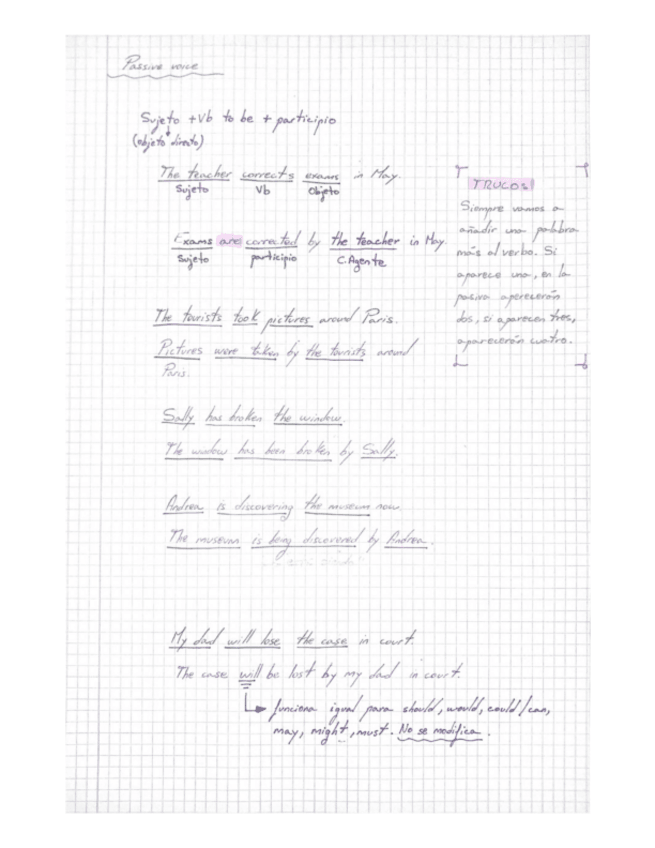 Passive voice
Sujeto + Vb to be + participio
(objeto directo)
The teacher corrects exams in May.
Sujeto Vb Objeto
Exams are corrected by the teacher in May
Sujeto participio C.Agente
TRUCOS
Siempre vamos a
añadir una palabra
más al verbo. Si
aparece una, en la
pasiva aparecerán
dos, si aparecen tres,
aparecerán cuatro.
The tourists took pictures around Paris.
Pictures were taken by the tourists around
Paris.
Sally has broken the window.
The window has been broken by Sally.
Andrea is discovering the museum now.
The museum is being discovered by Andrea.
My dad will lose the case in court.
The case will be lost by my dad in court.
funciona igual para should, would, could/can,
may, might, must. No se modifica.